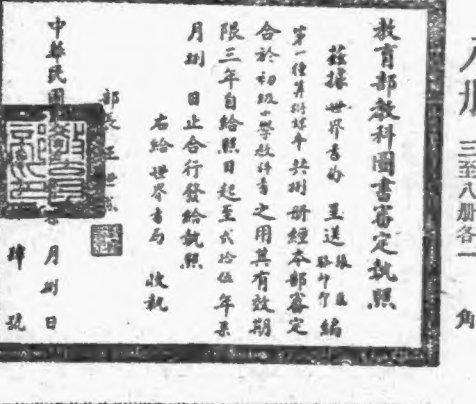 三至八册各一
角
教育部教科圖書審定執照
茲據世界書局呈送張
編
第一種算術課本共捌册經本部審定
合於初級小學教科書之用其有效期
限三年自給照日起至弍拾伍年
月捌日止合行發給執照
右給世界書局收執
部長王世
中華民國
月捌日
肆號